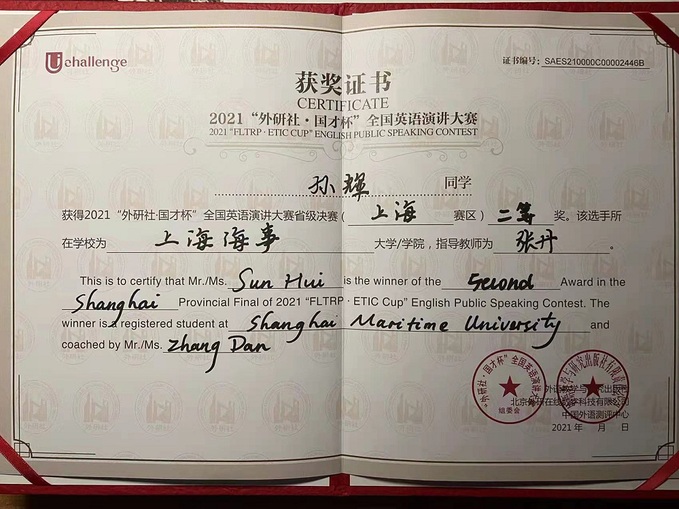 Uchallenge
证书编号：SAES210000C00002446B
获奖证书
CERTIFICATE
2021 “外研社·国才杯” 全国英语演讲大赛
2021 “FLTRP · ETIC CUP” ENGLISH PUBLIC SPEAKING CONTEST
孙辉 同学
获得2021 “外研社·国才杯” 全国英语演讲大赛省级决赛（ 上海 赛区） 二等 奖。该选手所
在学校为 上海海事 大学/学院，指导教师为 张丹 。
This is to certify that Mr./Ms. Sun Hui is the winner of the Second Award in the
Shanghai Provincial Final of 2021 “FLTRP · ETIC Cup” English Public Speaking Contest. The
winner is a registered student at Shanghai Maritime University and
coached by Mr./Ms. Zhang Dan
组委会
中国外语测评中心
2021 年 月 日